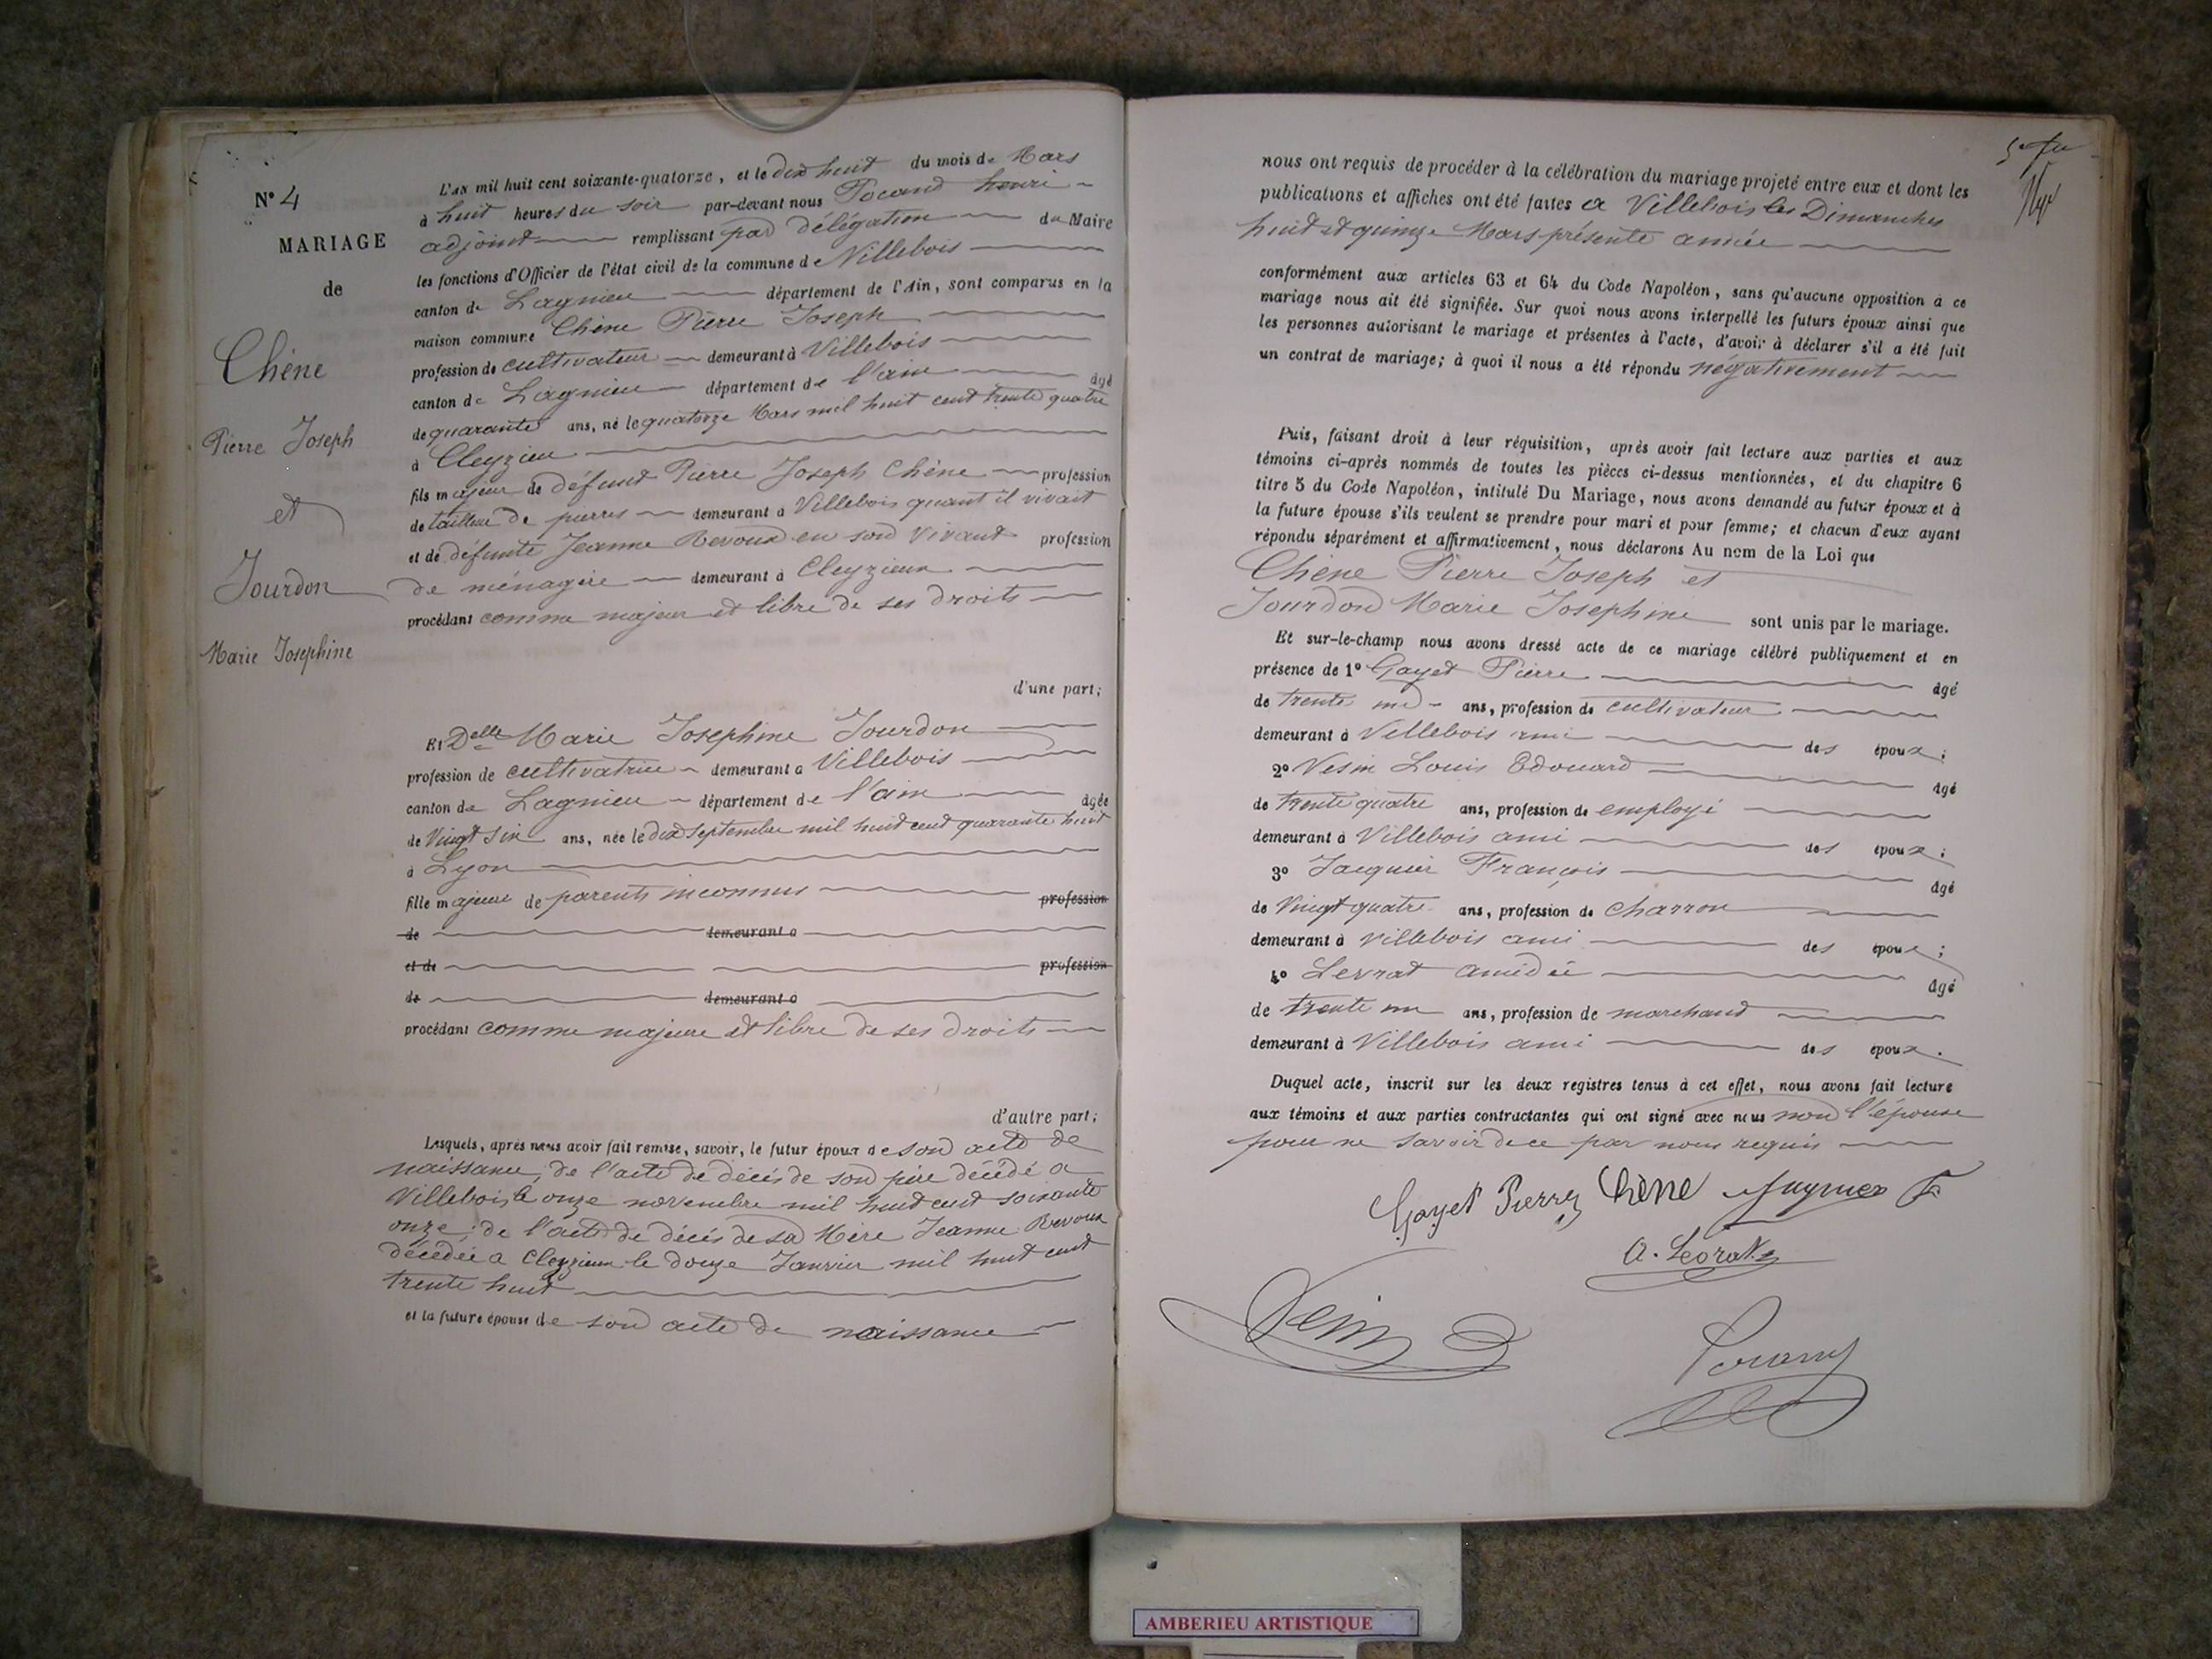 N° 4
MARIAGE
de
Chêne
Pierre Joseph
et
Jourdon
Marie Josephine
L'an mil huit cent soixante-quatorze, et le dix huit du mois de Mars
à huit heures du soir par-devant nous Pocand henri
adjoint remplissant par délégation du Maire
les fonctions d'Officier de l'état civil de la commune de Villebois
canton de Lagnieu département de l'Ain, sont comparus en la
maison commune Chêne Pierre Joseph
profession de cultivateur demeurant à Villebois
canton de Lagnieu département de l'ain âgé
de quarante ans, né le quatorze Mars mil huit cent trente quatre
à Cleyzieu
fils majeur de défunt Pierre Joseph Chêne profession
de tailleur de pierres demeurant à Villebois quant il vivait
et de défunte Jeanne Revoux en son vivant profession
de ménagère demeurant à Cleyzieux
procédant comme majeur et libre de ses droits
d'une part;
Et Delle Marie Josephine Jourdon
profession de cultivatrice demeurant à Villebois
canton de Lagnieu département de l'ain âgée
de Vingt six ans, née le dix septembre mil huit cent quarante huit
à Lyon
fille majeure de parents inconnus profession
de demeurant à
et de profession
de demeurant à
procédant comme majeure et libre de ses droits
d'autre part;
Lesquels, après nous avoir fait remise, savoir, le futur époux de son acte de
naissance, de l'acte de décès de son père décédé a
Villebois, le onze novembre mil huit cent soixante
onze; de l'acte de décès de sa Mère Jeanne Revoux
décédée a Cleyzieux le douze Janvier mil huit cent
trente huit
et la future épouse de son acte de naissance
nous ont requis de procéder à la célébration du mariage projeté entre eux et dont les
publications et affiches ont été faites a Villebois les Dimanches
huit et quinze Mars présente année
conformément aux articles 63 et 64 du Code Napoléon, sans qu'aucune opposition à ce
mariage nous ait été signifiée. Sur quoi nous avons interpellé les futurs époux ainsi que
les personnes autorisant le mariage et présentes à l'acte, d'avoir à déclarer s'il a été fait
un contrat de mariage; à quoi il nous a été répondu négativement
Puis, faisant droit à leur réquisition, après avoir fait lecture aux parties et aux
témoins ci-après nommés de toutes les pièces ci-dessus mentionnées, et du chapitre 6
titre 5 du Code Napoléon, intitulé Du Mariage, nous avons demandé au futur époux et à
la future épouse s'ils veulent se prendre pour mari et pour femme; et chacun d'eux ayant
répondu séparément et affirmativement, nous déclarons Au nom de la Loi que
Chêne Pierre Joseph et
Jourdon Marie Josephine sont unis par le mariage.
Et sur-le-champ nous avons dressé acte de ce mariage célébré publiquement et en
présence de 1° Gayet Pierre âgé
de trente ans, profession de cultivateur
demeurant à Villebois ami des époux;
2° Vesin Louis Edouard âgé
de trente quatre ans, profession de employé
demeurant à Villebois ami des époux;
3° Jacquier François âgé
de Vingt quatre ans, profession de charron
demeurant à Villebois ami des époux;
4° Levrat Amédée âgé
de trente un ans, profession de marchand
demeurant à Villebois ami des époux.
Duquel acte, inscrit sur les deux registres tenus à cet effet, nous avons fait lecture
aux témoins et aux parties contractantes qui ont signé avec nous non l'épouse
pour ne savoir de ce par nous requis
Gayet Pierre Chêne Jaquier F
A. Levrat
Vesin
AMBERIEU ARTISTIQUE